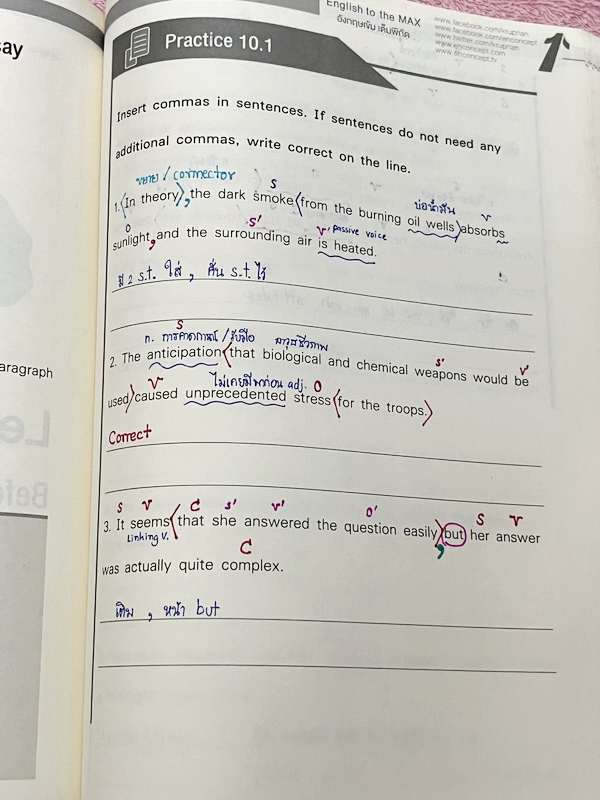 say
English to the MAX
อังกฤษเข้ม เต็มพิกัด
www.facebook.com/krupnan
www.facebook.com/enconcept
www.twitter.com/krupnan
www.enconcept.com
Practice 10.1
Insert commas in sentences. If sentences do not need any
additional commas, write correct on the line.
ขยาย / connector S บ่อน้ำมัน V
1. In theory, the dark smoke from the burning oil wells absorbs
O S' V' passive voice
sunlight, and the surrounding air is heated.
มี 2 s.t. ใส่ , คั่น s.t. ไว้
S
n. การคาดการณ์ / รับมือ อาวุธชีวภาพ S' V'
2. The anticipation that biological and chemical weapons would be
V ไม่เคยมีมาก่อน adj. O
used caused unprecedented stress for the troops.
Correct
S V C S' V' O' S V
3. It seems that she answered the question easily, but her answer
Linking V. C
was actually quite complex.
เติม , หน้า but
aragraph